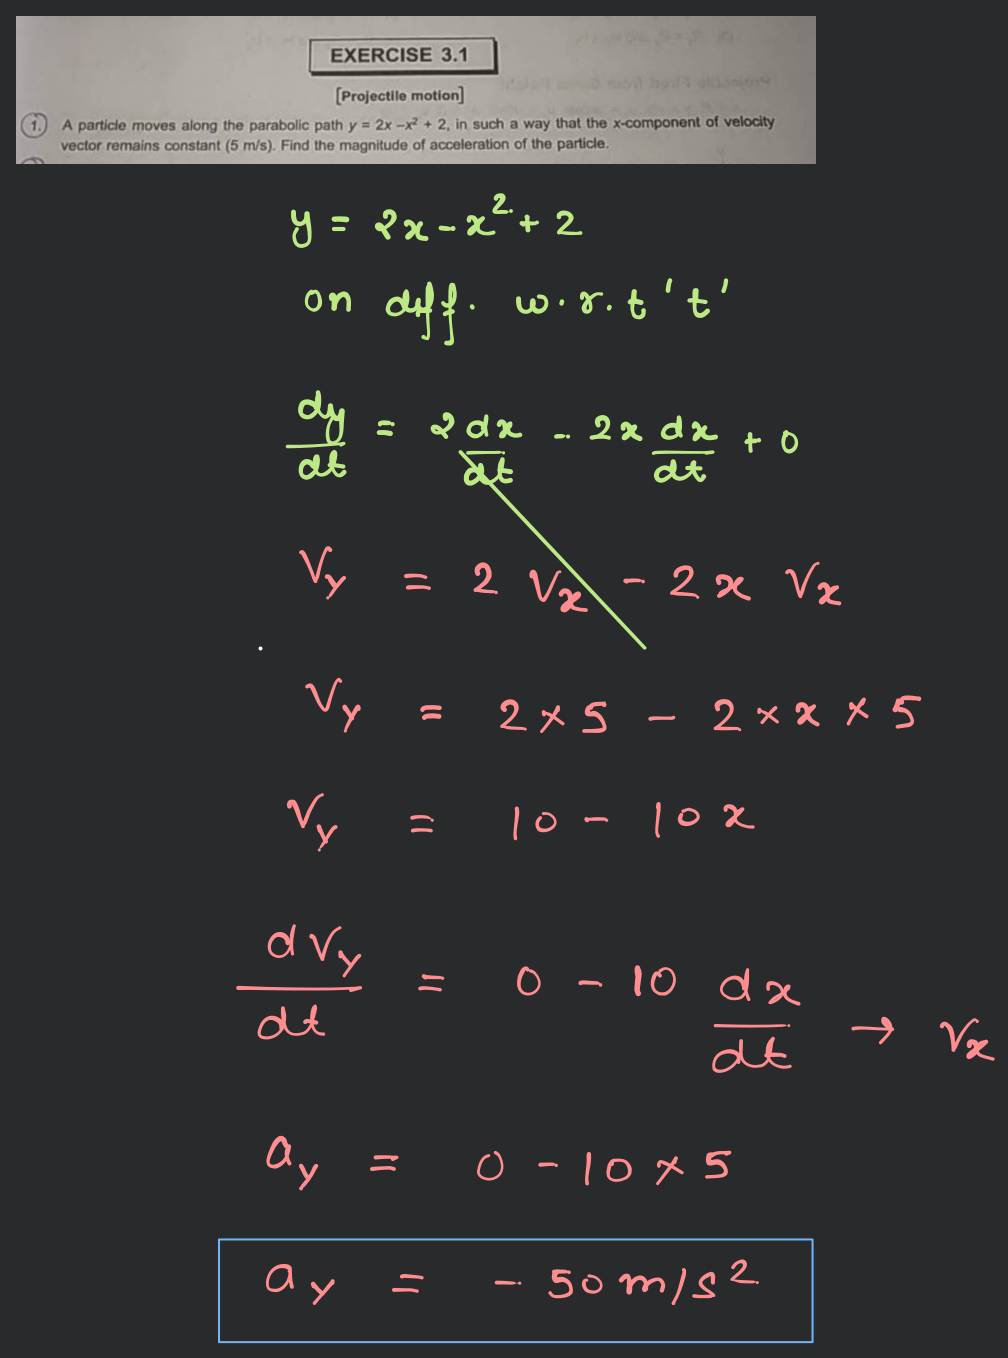 EXERCISE 3.1
[Projectile motion]
1. A particle moves along the parabolic path y = 2x –x² + 2, in such a way that the x-component of velocity
vector remains constant (5 m/s). Find the magnitude of acceleration of the particle.
y = 2x - x² + 2
on diff. w.r.t 't'
dy/dt = 2 dx/dt - 2x dx/dt + 0
Vy = 2 Vx - 2x Vx
Vy = 2 × 5 - 2 × x × 5
Vy = 10 - 10x
dVy/dt = 0 - 10 dx/dt → Vx
ay = 0 - 10 × 5
ay = - 50 m/s²